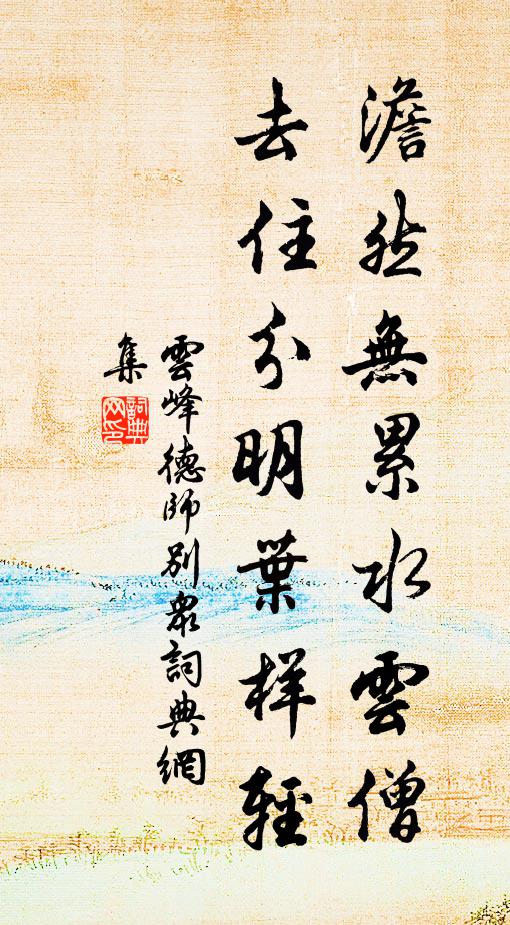 澹然無累水雲僧
去住分明葉样輕
雲峰德師別衆詞典網
集
詞典网印